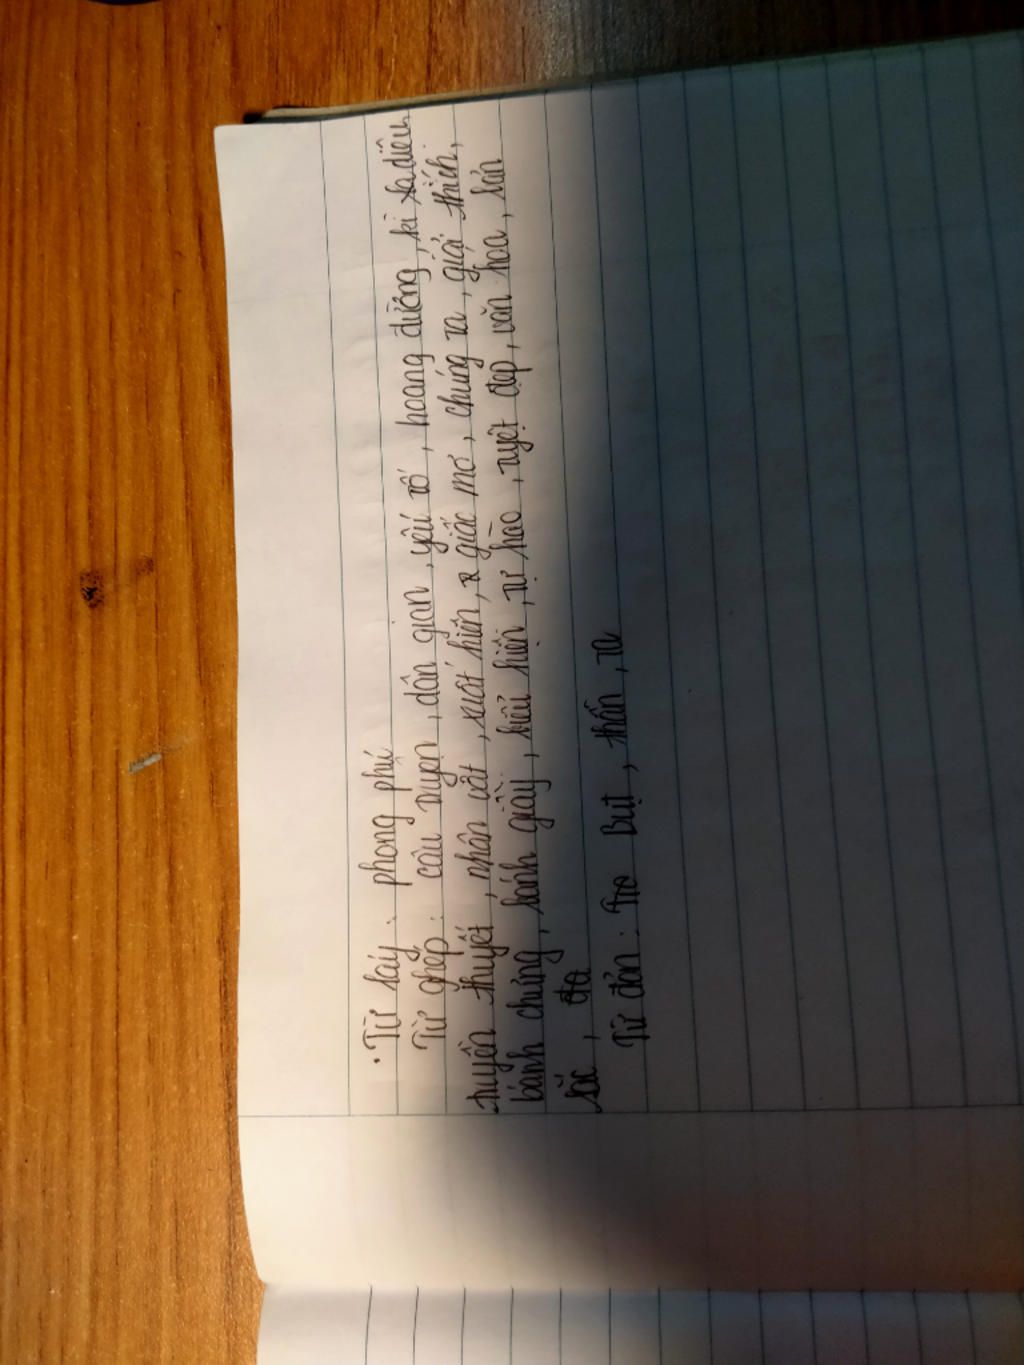 . Từ láy : phong phú
Từ ghép : câu truyện , dân gian , yếu tố , hoang đường , kì diệu
truyền thuyết , nhân vật , xuất hiện , giấc mơ , chúng ta , giải thích ,
bánh chưng , bánh giầy , biểu hiện , tự hào , tuyệt đẹp , văn hoa , bản
sắc ,
Từ đơn : Bụt , thần , ta